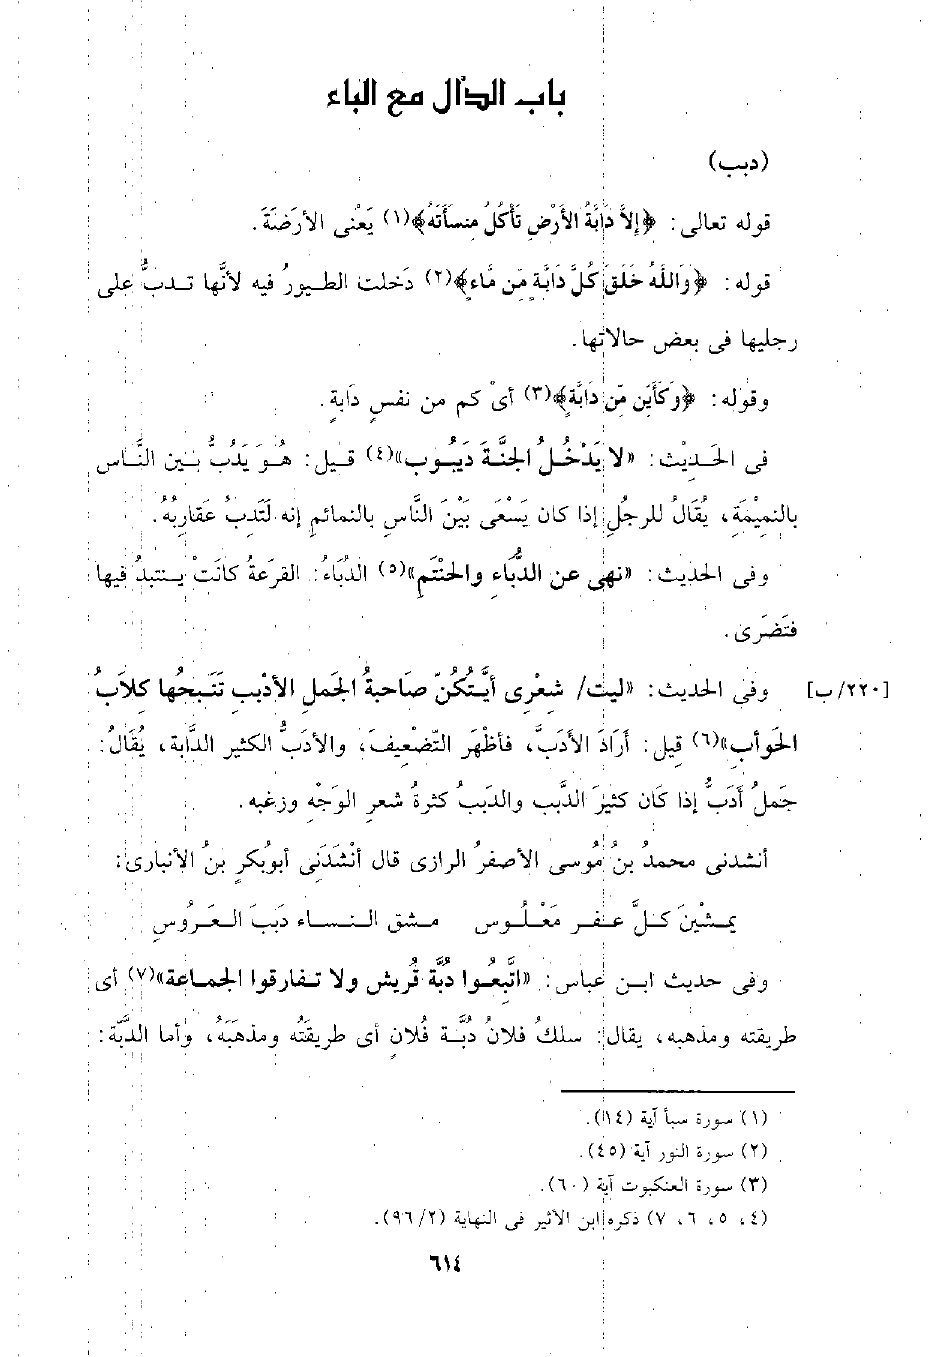 باب الدال مع الباء
(دبب)
قوله تعالى: ﴿إلاَّ دَابَّةُ الأَرْضِ تَأْكُلُ مِنسَأَتَهُ﴾(١) يَعْنى الأرَضَةَ.
قوله: ﴿وَاللَّهُ خَلَقَ كُلَّ دَابَّةٍ مِّن مَّاءٍ﴾(٢) دَخلت الطيورُ فيه لأنَّها تدبُّ على
رجليها فى بعض حالاتها.
وقوله: ﴿وَكَأَيِّن مِّن دَابَّةٍ﴾(٣) أىْ كم من نفسٍ دَابةٍ.
فى الحَديْث: «لا يَدْخُلُ الجنَّةَ دَيبُوب»(٤) قيل: هُوَ يَدُبُّ بين النَّاس
بالنميْمَةِ، يُقَالُ للرجُلِ إذا كان يَسْعَى بَيْنَ النَّاسِ بالنمائمِ إنه لَتَدِبُّ عَقاربُهُ.
وفى الحديث: «نهى عن الدُّبَّاء والحنْتَمِ»(٥) الدُبَاءُ: القرَعةُ كانَتْ ينتبذُ فيها
فتَضرَى.
[٢٢٠/ب] وفى الحديث: «ليت/ شعْرِى أيَّتُكُنّ صَاحبةُ الجَملِ الأدْببِ تَنْبحُها كلاَبُ
الحَوأبِ»(٦) قيل: أرَادَ الأدَبَّ، فأظْهَر التّضعيفَ، والأدَبُّ الكثير الدَّابة، يُقَالُ:
جَملُ أدَبُّ إذا كَان كثيرَ الدَّبب والدَببُ كثرةُ شعرِ الوَجْهِ وزغبه.
أنشدنى محمدُ بنُ مُوسى الأصفرُ الرازى قال أنْشَدَنِى أبوُبكرٍ بنُ الأنبارى:
يمشْينَ كلَّ عفر مَعْلُوس مشق النساء دَببَ العَرُوسِ
وفى حديث ابن عباس: «اتَّبعُوا دُبَّة قُريش ولا تفارقوا الجماعة»(٧) أى
طريقته ومذهبه، يقال: سلكُ فلانُ دُبَّة فُلانٍ أى طريقتَه ومذهبَهُ، وأما الدَّبّة:
(١) سورة سبأ آية (١٤).
(٢) سورة النور آية (٤٥).
(٣) سورة العنكبوت آية (٦٠).
(٤، ٥، ٦، ٧) ذكره ابن الأثير فى النهاية (٩٦/٢).
٦١٤